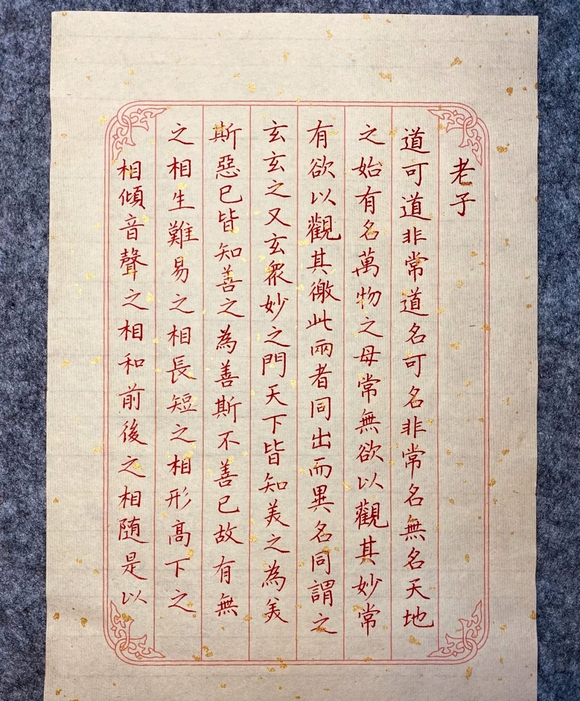 老子
道可道非常道名可名非常名無名天地
之始有名萬物之母常無欲以觀其妙常
有欲以觀其徼此兩者同出而異名同謂之
玄玄之又玄眾妙之門天下皆知美之為美
斯惡已皆知善之為善斯不善已故有無
之相生難易之相長短之相形高下之
相傾音聲之相和前後之相隨是以